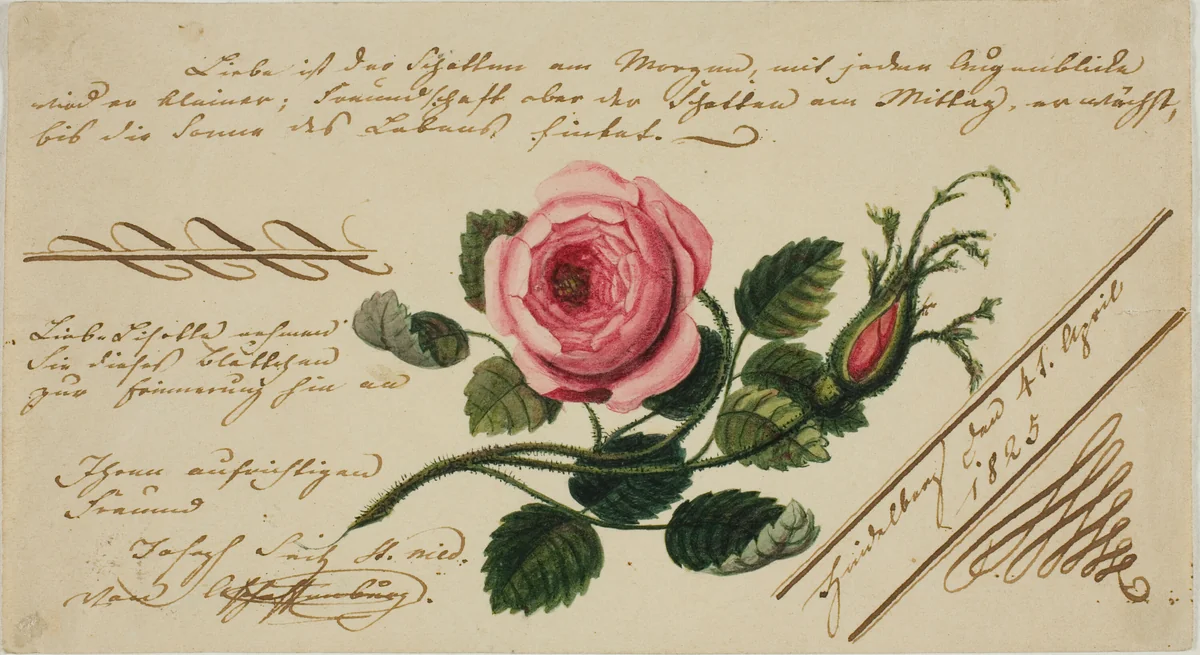 Liebe ist der Schatten am Morgen, mit jedem Augenblicke
wird er kleiner; Freundschaft aber der Schatten am Mittag, er wächst,
bis die Sonne des Lebens sinket.
nehmen
Sie dieses Blättchen
zur Erinnerung hin an
Ihren aufrichtigen
Freund
Joseph Seitz St. med.
von Aschaffenburg.
Heidelberg den 4t. April
1825